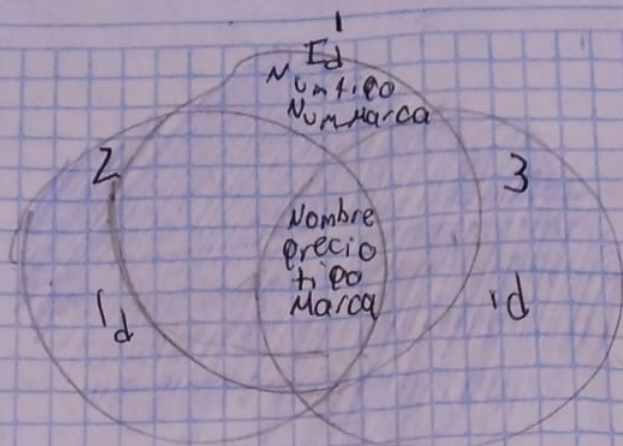 1
Id
Num tipo
Num Marca
2
3
Nombre
precio
tipo
Marca
Id
id